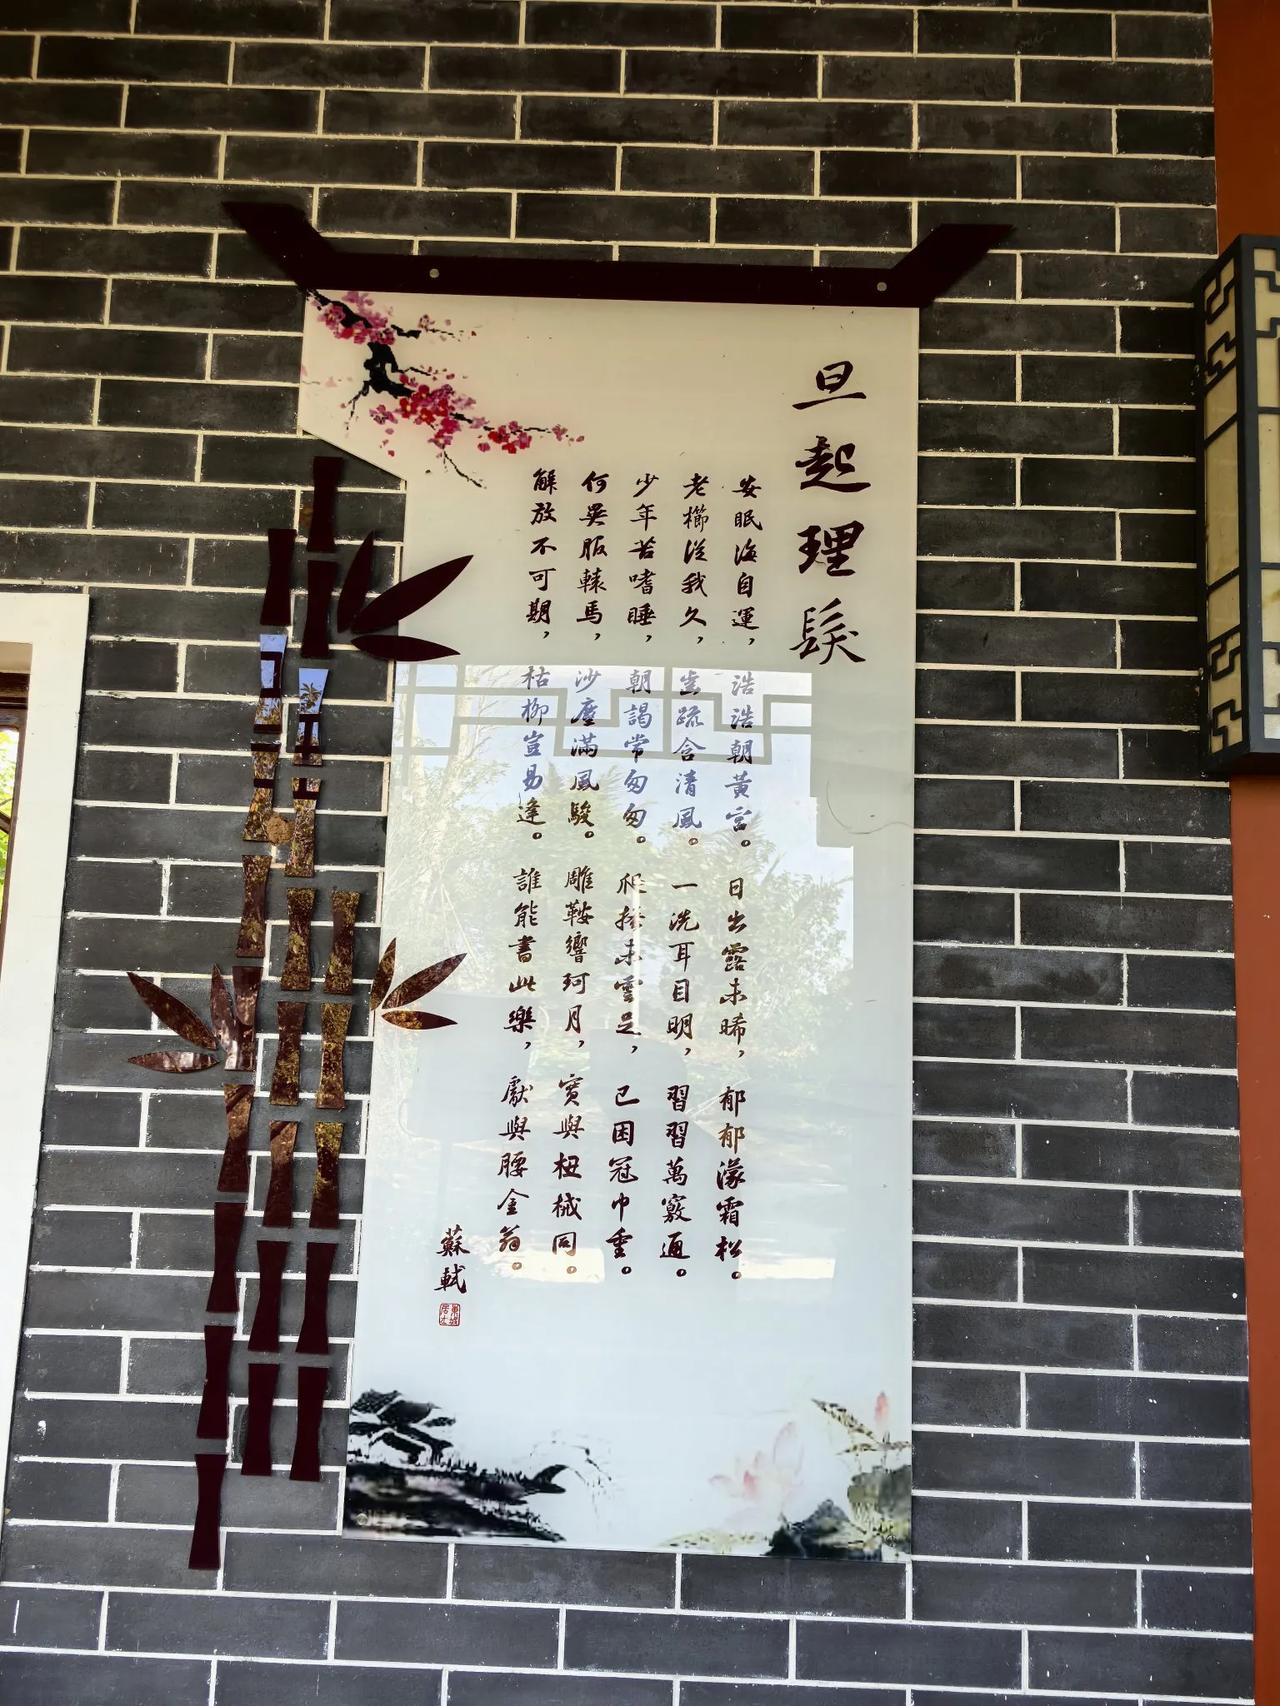 旦起理髮
安眠海自運，浩浩朝黃宮。日出露未晞，郁郁濛霜松。
老櫛從我久，齒疏含清風。一洗耳目明，習習萬竅通。
少年苦嗜睡，朝謁常匆匆。爬搔未雲足，已困冠巾重。
何異服轅馬，沙塵滿風騣。雕鞍響珂月，實與杻械同。
解放不可期，枯柳豈易逢。誰能書此樂，獻與腰金翁。
蘇軾
東坡居士